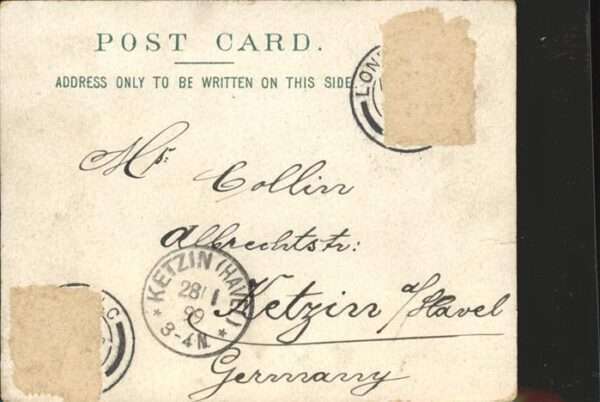 POST CARD.
ADDRESS ONLY TO BE WRITTEN ON THIS SIDE
LON
Mr. Collin
Albrechtstr:
Ketzin a/Havel
Germany
KETZIN (HAVEL)
28 1
99
3-4N.
C